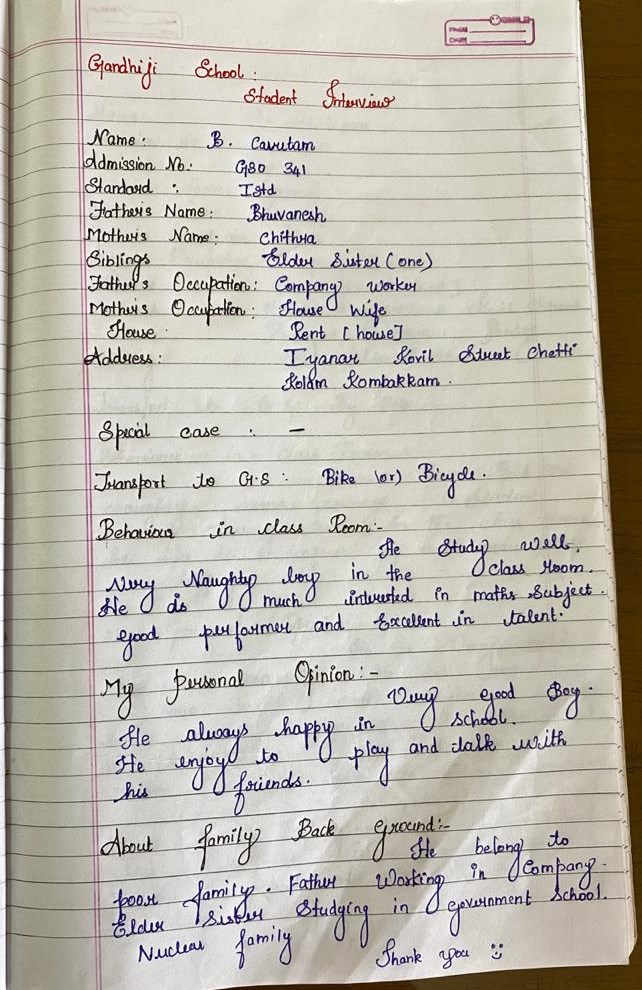 Gandhiji School.
Student Interview
Name: B. Cavutam
Admission No: GSO 341
Standard : Istd
Father's Name: Bhuvanesh
Mother's Name: Chithra
Siblings Elder Sister (one)
Father's Occupation: Company Worker
Mother's Occupation: House Wife
House Rent [house]
Address: Iyanar Kovil Street Chetti
Kolam Kombakkam.
Special case : -
Transport to G.S : Bike (or) Bicycle.
Behaviour in class Room:-
He Study well.
Very Naughty boy in the class room.
He is much interested in maths Subject.
good performer and Excellent in talent.
My personal Opinion:-
Very good Boy.
He always happy in school.
He enjoy to play and talk with
his friends.
About family Back ground:-
He belong to
poor family. Father Working in Company.
Elder Sister Studying in government School.
Nuclear family
Thank you